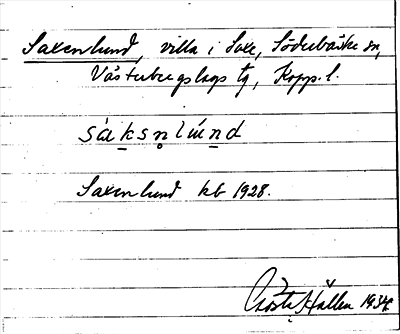 Saxenlund, villa i Saxe, Söderbärke sn,
Västerbergslags tg, Kopp. l.
sáksn̥lùnd
Saxenlund kb 1928.
Gösta Hallen 1934.